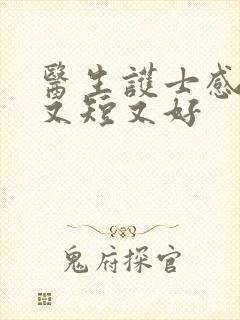 醫生護士感
又短又好
鬼府探官